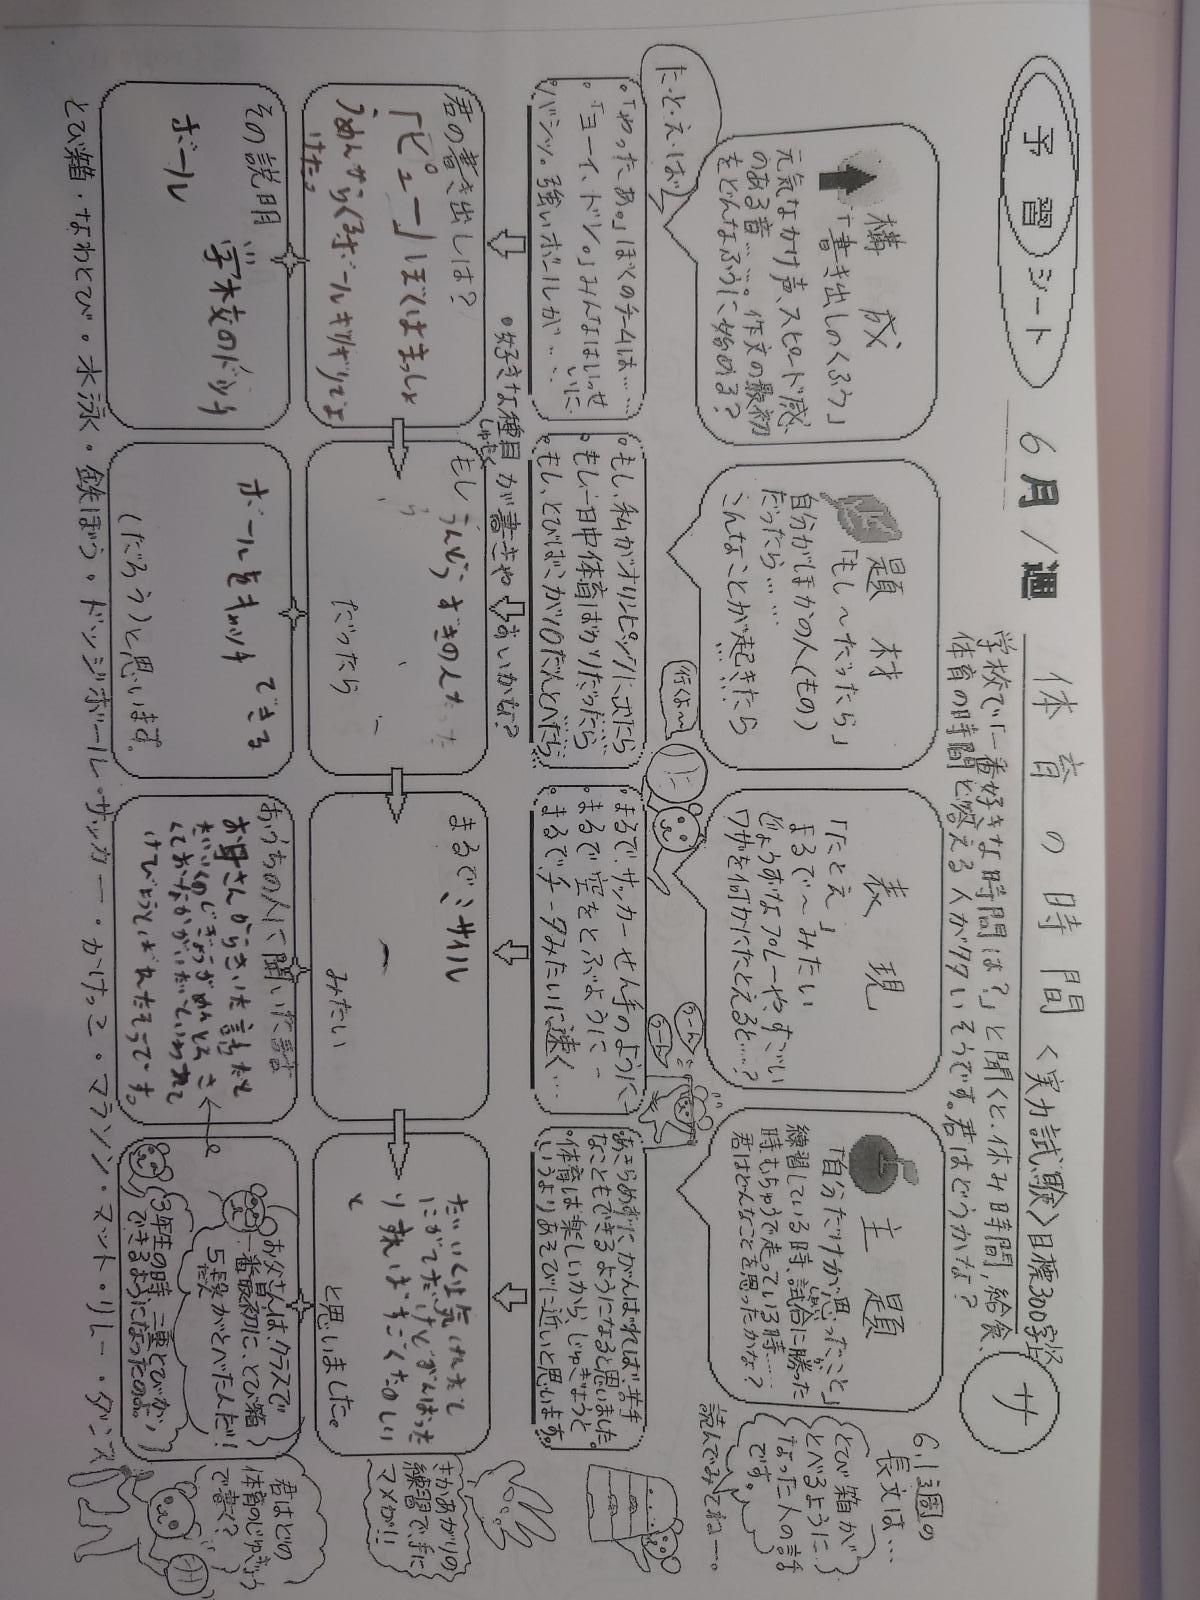 予習シート
6月1週
体育の時間
<実力試験>目標300字以上
サ
学校で「一番好きな時間は?」と聞くと、休み時間、給食、
体育の時間と答える人が多いそうです。君はどうかな?
構成
「書き出しのくふう」
元気なかけ声、スピード感
のある音……。作文の最初
をどんなふうに始める?
題材
「もし~だったら」
自分がほかの人(もの)
だったら……
こんなことが起きたら…
表現
「たとえ」
まるで~みたい
じょうずなプレーや、すごい
ワザを何かにたとえると……?
主題
「自分だけが思ったこと」
練習している時、試合に勝った
時もちゅうで走っている時……
君はどんなことを思ったかな?
6.1週の
長文は…
とび箱が
とべるように
なった人の話
です。
読んでみてねー。
た・と・え・ば
行くよ~
うーん
うーん
。「やったあ。」ぼくのチームは……
。「ヨーイ、ドン。」みんなはいっせいに
。バシッ。強いボールが…
。もし、私がオリンピックに出たら
。もし一日中体育ばかりだったら
。もし、とびばこが10だんとべたら
。まるで、サッカーせん手のように
。まるで空をとぶように…
。まるでチータみたいに速く…
。あきらめずにがんばれば、苦手
なこともできるようになると思いました。
。体育は楽しいから、じゅぎょうと
いうよりあそびに近いと思います。
。好きな種目が書きやすいかな?
しゅもく
君の書き出しは?
「ピュー」ぼくはまっしょ
うめんからくるボールギリギリでよ
けた。
もしうんどうずきの人だった
だったら
まるでミサイル
みたい
たいいくは気にがてだけどがんばった
り
すごくたのしい
と
と思いました。
その説明
学校のドッチ
ボール
ボールをキャッチできる
(だろう)と思います。
おうちの人に聞いた話
お母さんからきいた話だと
たいいくのじぎょうがめんどうさ
くておなかがいたいていわれて
お父さんは、クラスで
一番最初に、とび箱
5段がとべたんだ!
3年生の時二重とびが
できるようになったのよ。
さかあがりの
練習で手に
マメが!!
君はどの
体育のじゅぎょう
で書く?
とび箱・なわとび・水泳・鉄ぼう・ドッジボール・サッカー・かけっこ・マラソン・マット・リレー・ダンス